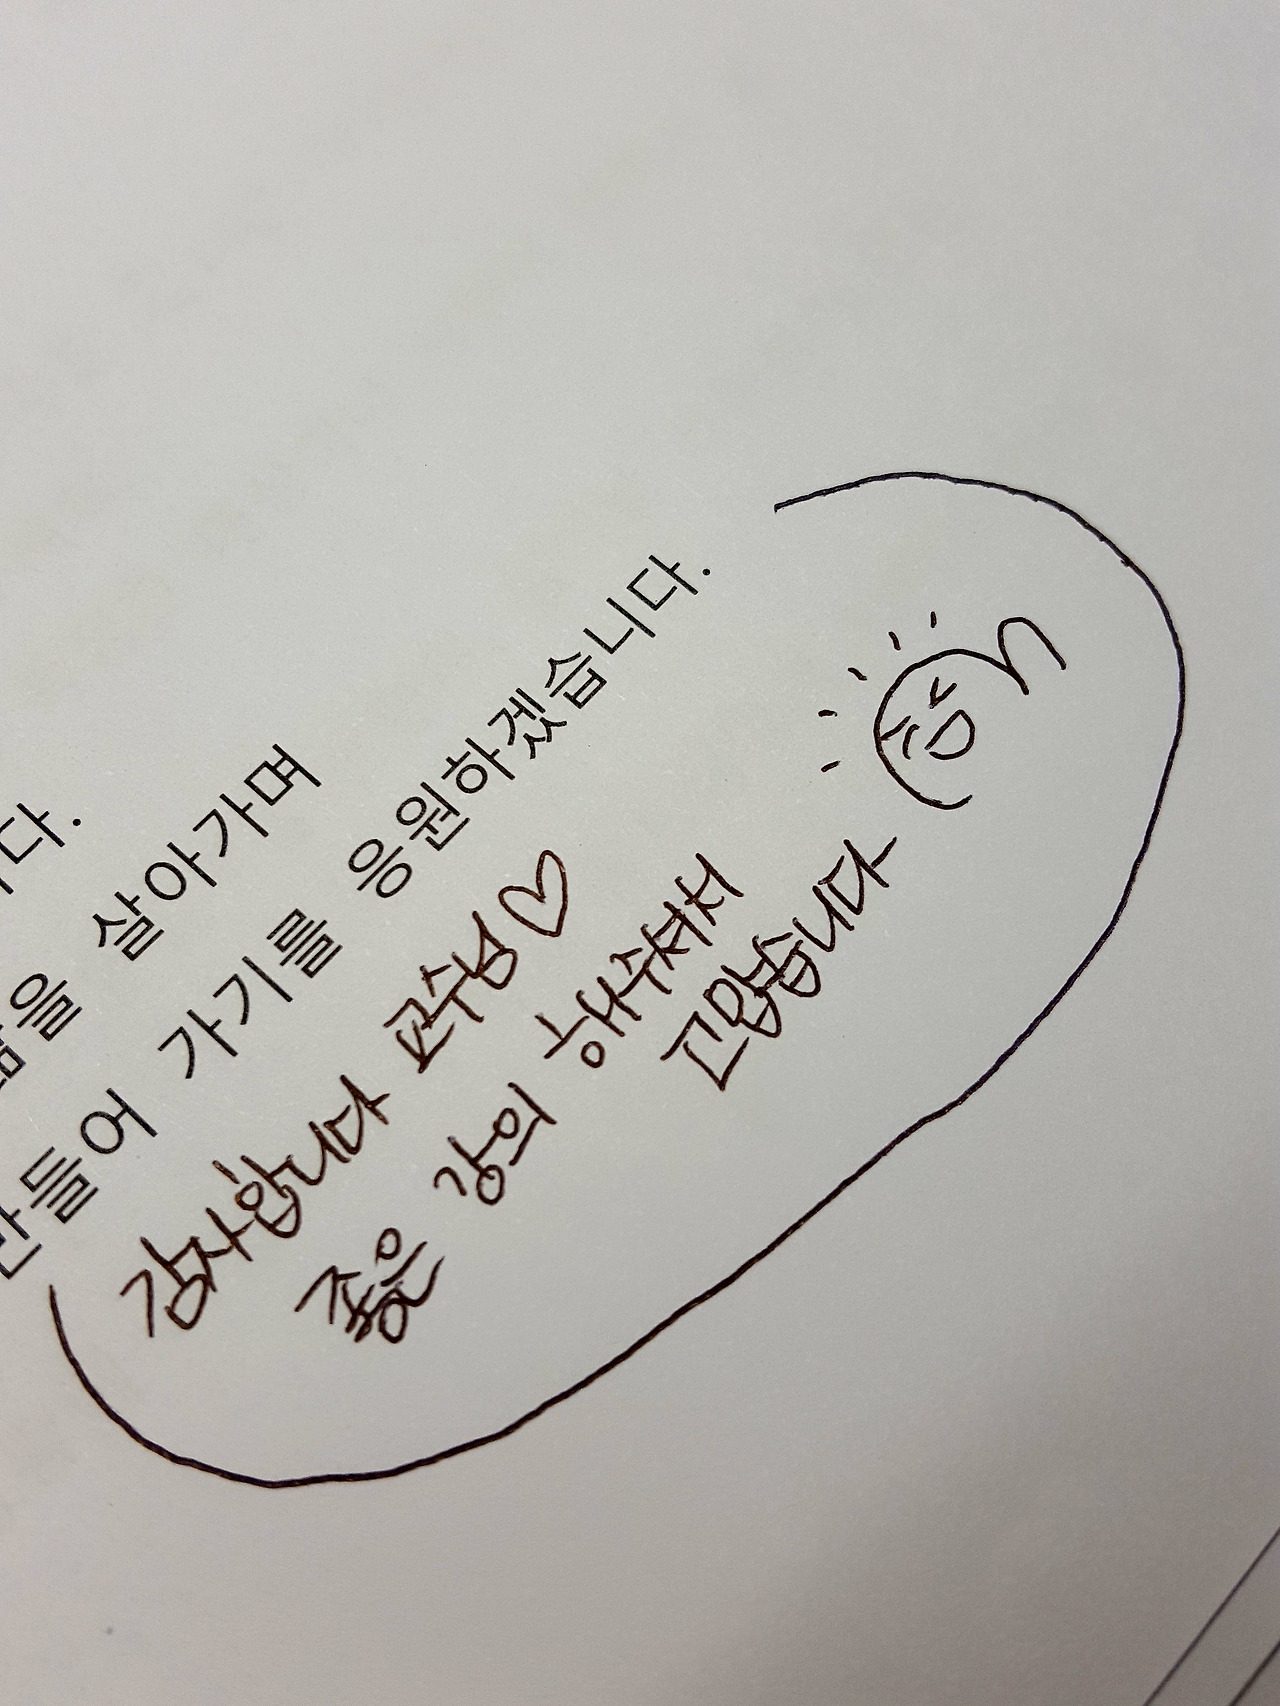 다.
을 살아가며
만들어 가기를 응원하겠습니다.
감사합니다 교수님♡
좋은 강의 해주셔서
고맙습니다